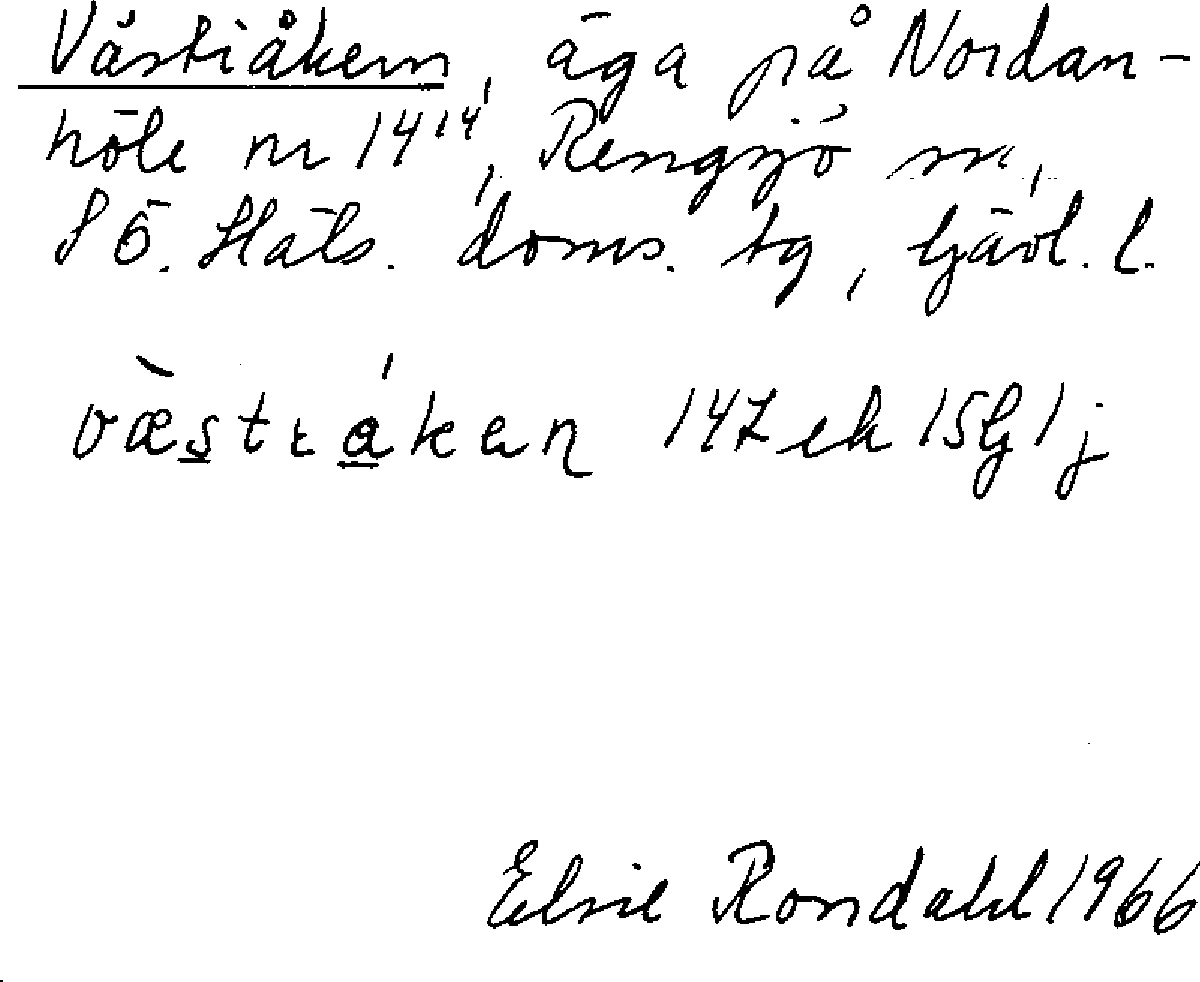 Västiåkern, äga på Nordan-
höle nr 14¹⁴, Rengsjö sn,
SÖ. Häls. doms. tg, Gävl. l.
væstɩakan 147 ek 15G1j
Elsie Rondahl 1966